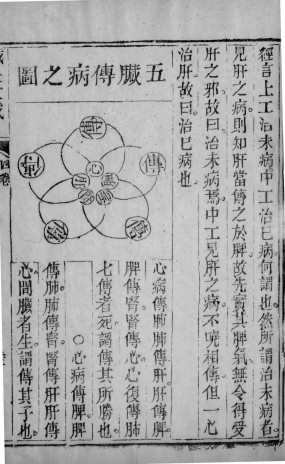 經言上工治未病中工治已病何謂也然所謂治未病者
見肝之病則知肝當傳之於脾故先實其脾氣無令得受
肝之邪故曰治未病焉中工見肝之病不曉相傳但一心
治肝故曰治已病也
五臟傳病之圖
傳
心
心病傳肺肺傳肝肝傳脾
脾傳腎腎傳心心復傳肺
七傳者死謂傳其所勝也
○心病傳脾脾
傳肺肺傳腎腎傳肝肝傳
心間臟者生謂傳其子也
四卷